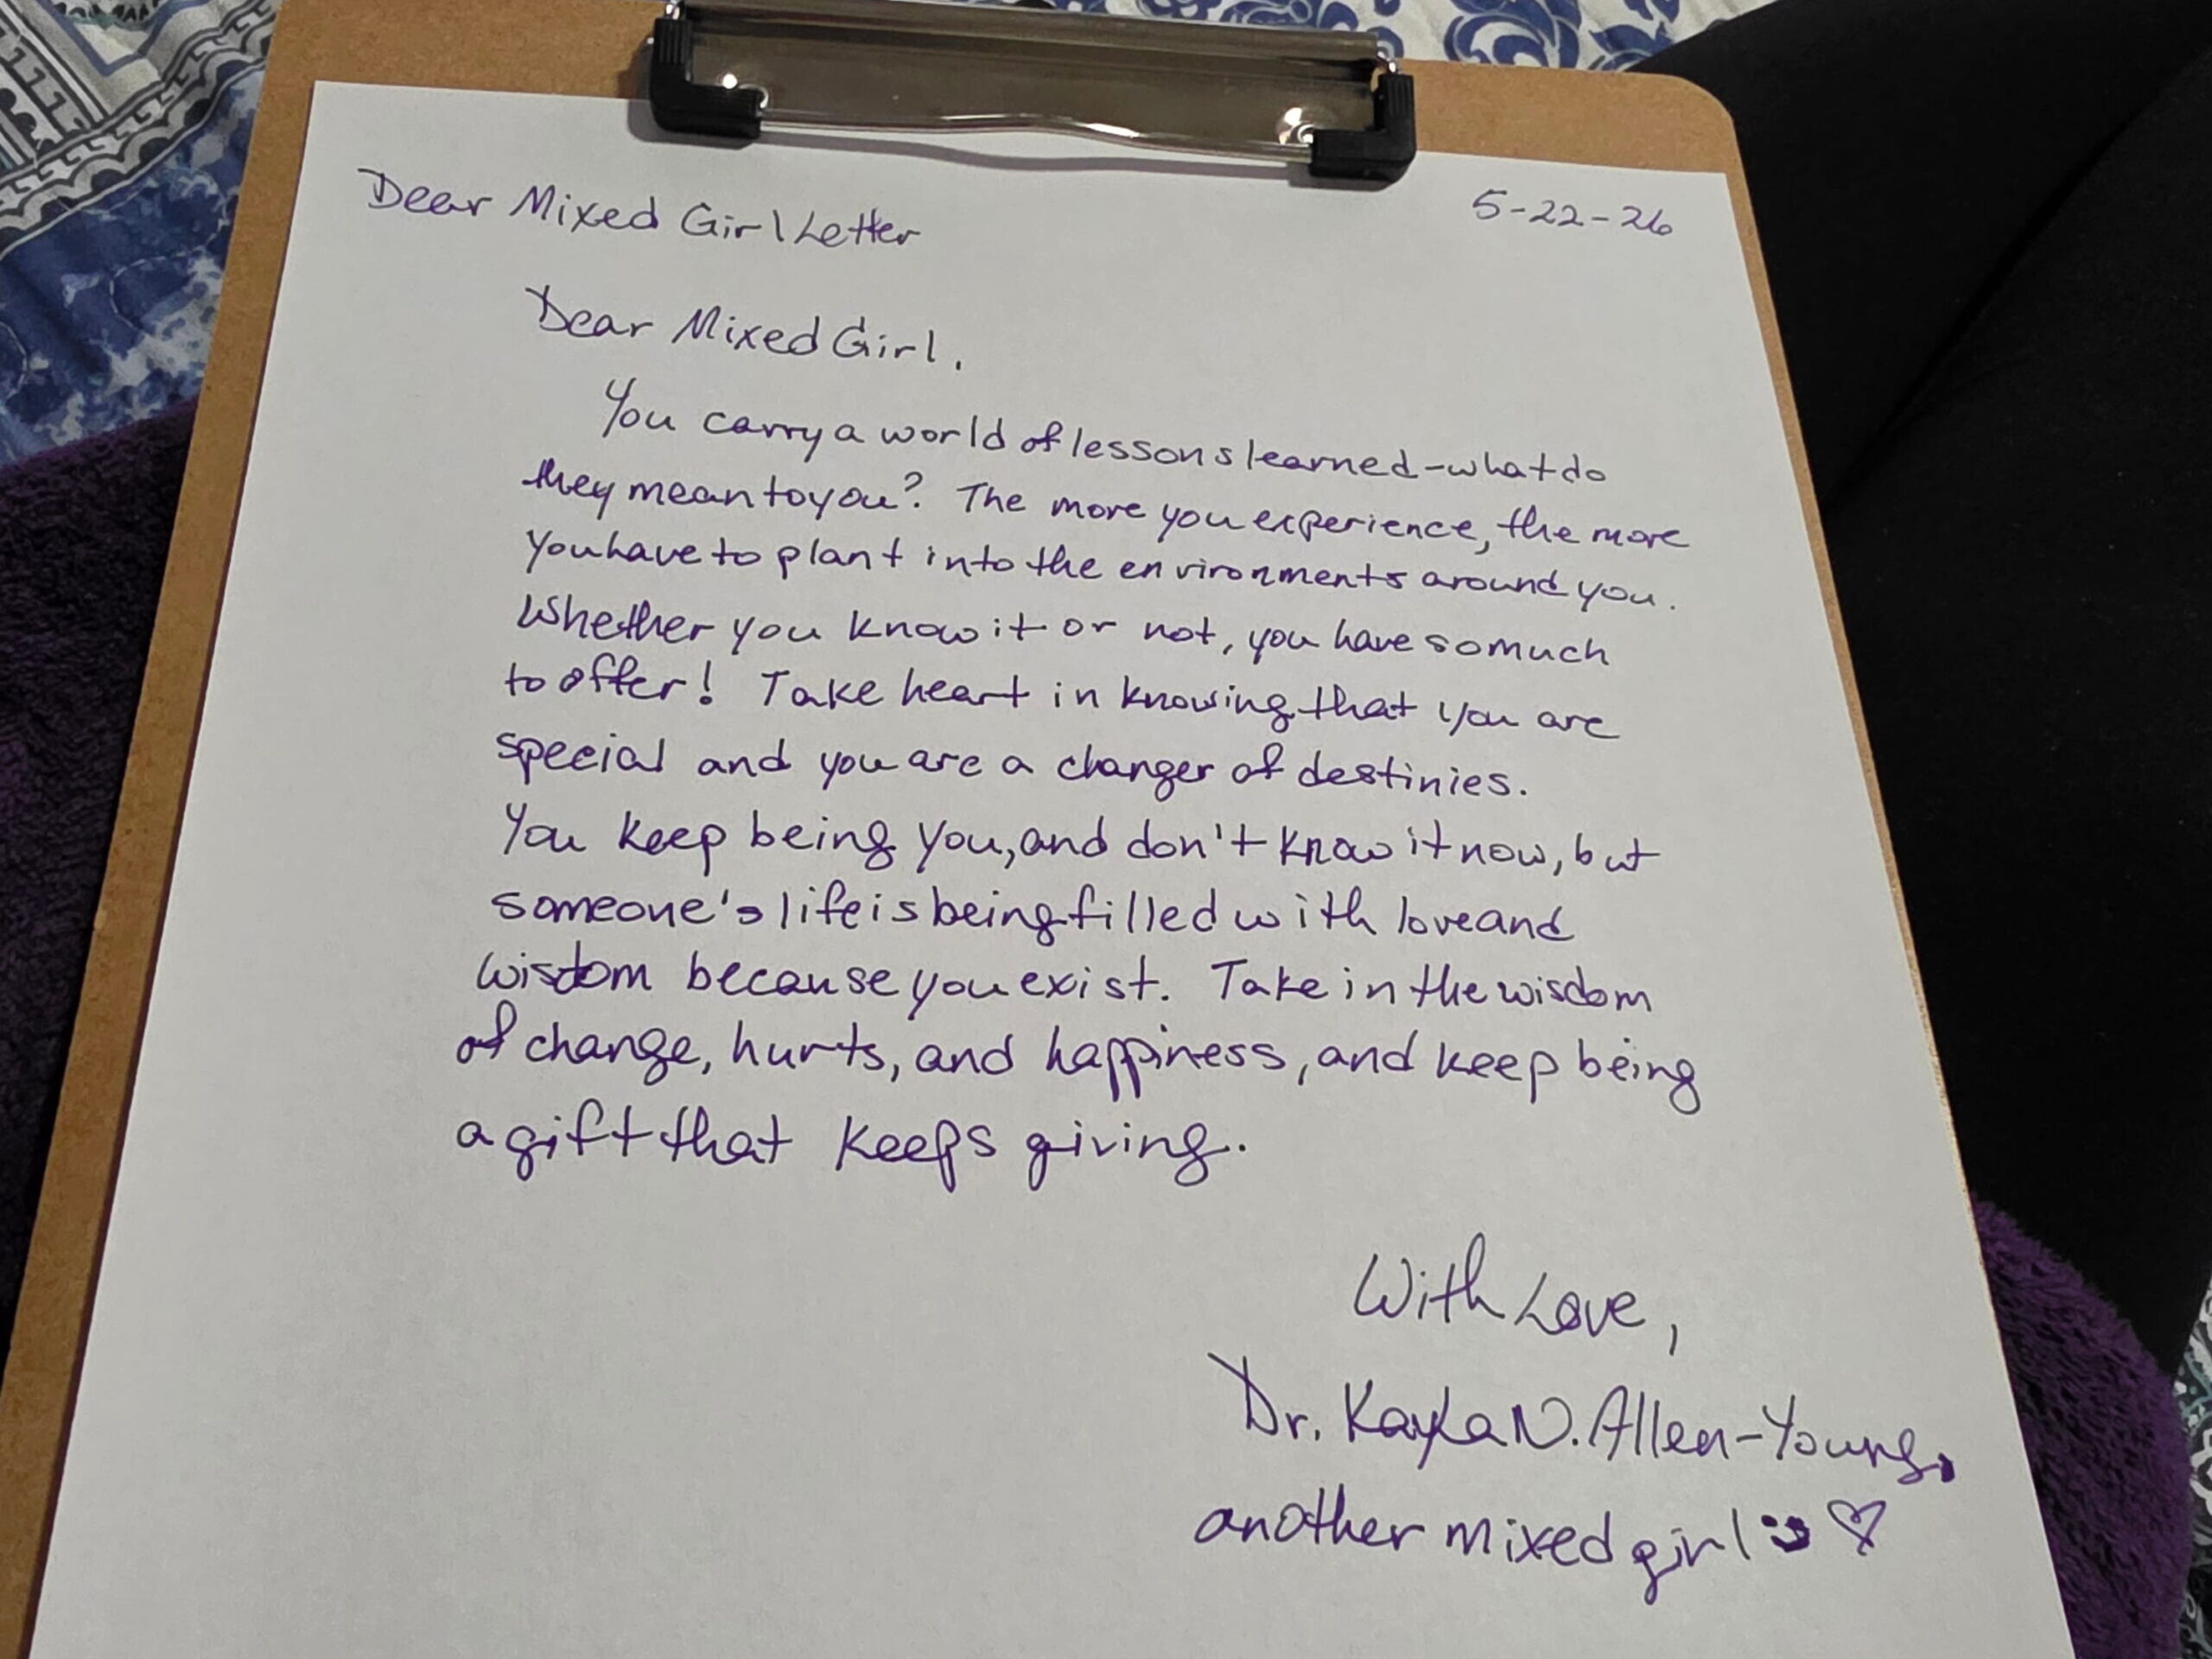 Dear Mixed Girl Letter
5-22-26
Dear Mixed Girl,
You carry a world of lessons learned-what do
they mean to you? The more you experience, the more
you have to plant into the environments around you.
Whether you know it or not, you have so much
to offer! Take heart in knowing that you are
special and you are a changer of destinies.
You keep being you, and don't know it now, but
someone's life is being filled with love and
wisdom because you exist. Take in the wisdom
of change, hurts, and happiness, and keep being
a gift that keeps giving.
With Love,
Dr. Kayla N. Allen-Young,
another mixed girl :) ♡